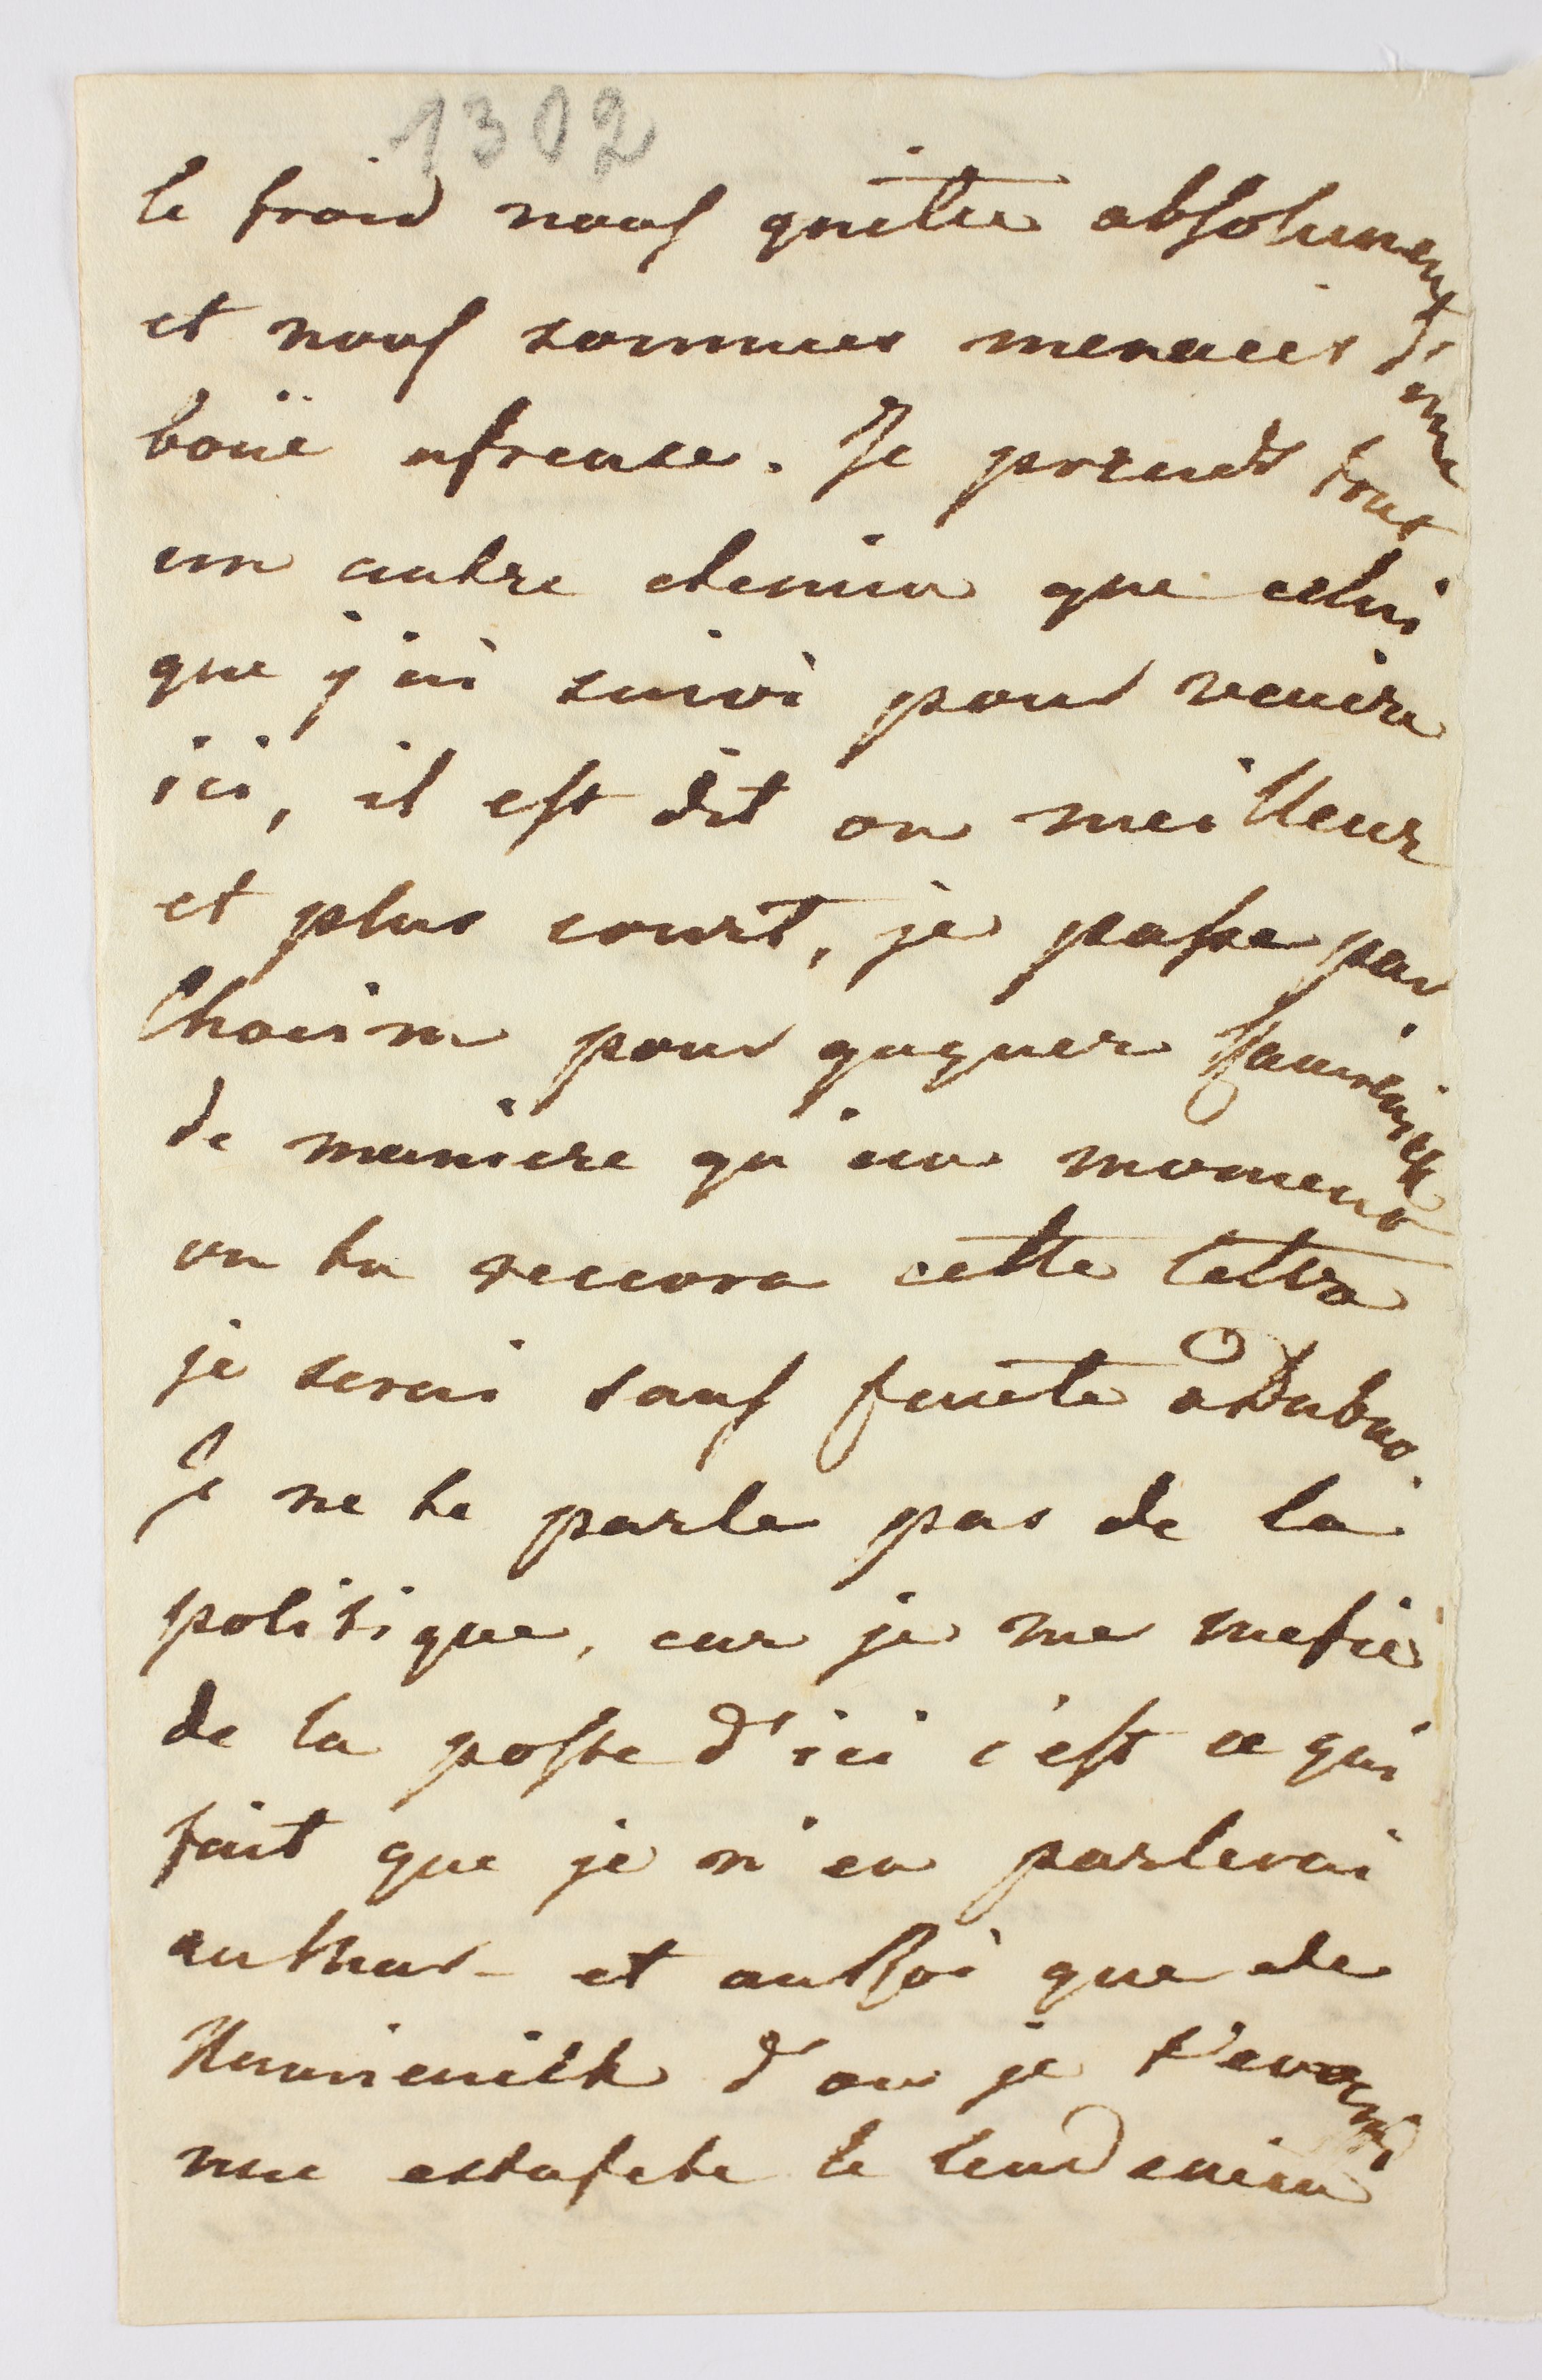 1302
le froid nous quitte absolument
et nous sommes menacés d'une
bouë afreuse. Je prends tout
un autre chemin que celui
que j'ai suivi pour venire
ici, il est dit on meilleur
et plus court, je passe par
pour gagner
de maniere qu'un moment
ou tu recevra cette lettre
je serai sauf faute à Dubno.
Je ne te parle pas de la
politique, car je me mefie
de la poste d'ici c'est ce qui
fait que je n'en parlerai
et aussi que de
d'ou je t'enverai
une estafete le lendemain